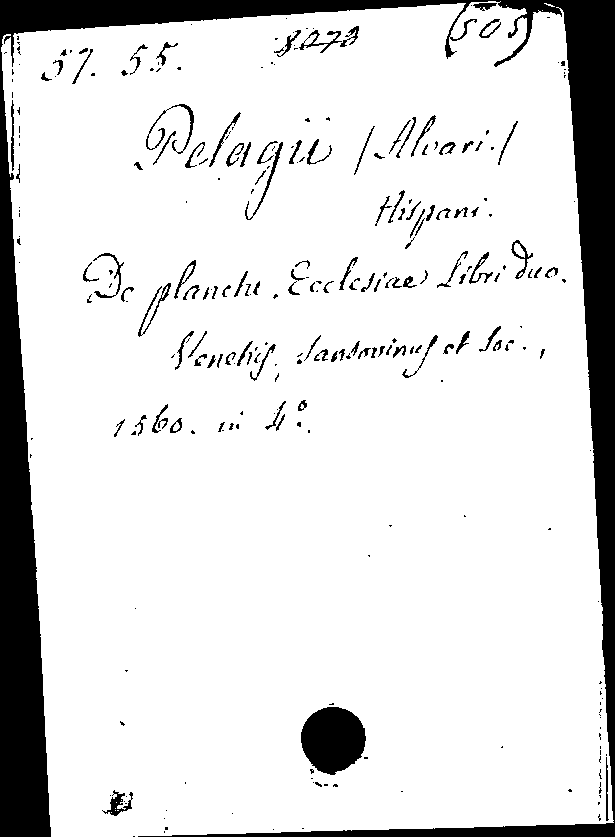 57. 55. 8273 (505)
Pelagii /Alvari./
Hispani.
De planctu. Ecclesiae Libri duo.
Venetiis, Sansovinus et Soc.,
1560. in 4°.